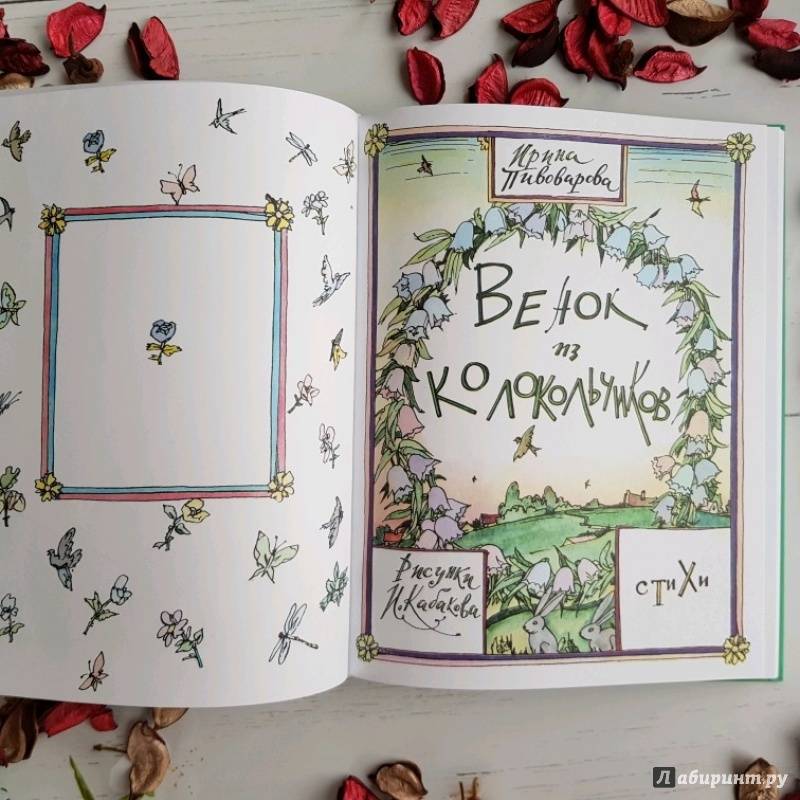 Ирина
Пивоварова
Венок
из
колокольчиков
Рисунки
И. Кабакова
стихи
Лабиринт.ру